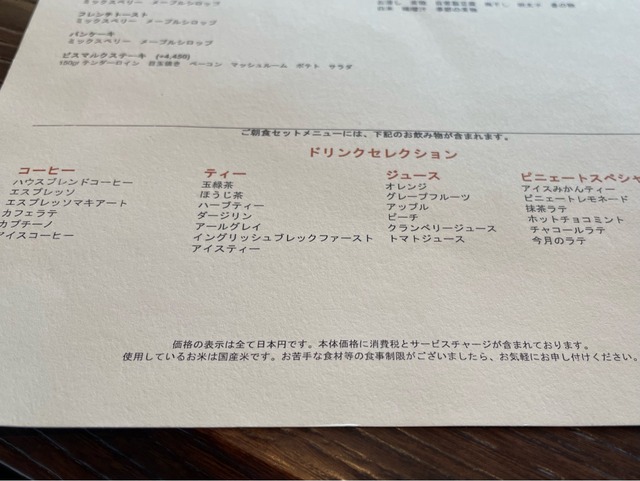 ミックスベリー メープルシロップ
フレンチトースト
ミックスベリー メープルシロップ
パンケーキ
ミックスベリー メープルシロップ
ビスマルクステーキ (+4,450)
150gテンダーロイン 目玉焼き ベーコン マッシュルーム ポテト サラダ
ご朝食セットメニューには、下記のお飲み物が含まれます。
ドリンクセレクション
コーヒー
ハウスブレンドコーヒー
エスプレッソ
エスプレッソマキアート
カフェラテ
カプチーノ
アイスコーヒー
ティー
玉緑茶
ほうじ茶
ハーブティー
ダージリン
アールグレイ
イングリッシュブレックファースト
アイスティー
ジュース
オレンジ
グレープフルーツ
アップル
ピーチ
クランベリージュース
トマトジュース
ピニェートスペシャ
アイスみかんティー
ピニェートレモネード
抹茶ラテ
ホットチョコミント
チャコールラテ
今月のラテ
価格の表示は全て日本円です。本体価格に消費税とサービスチャージが含まれております。
使用しているお米は国産米です。お苦手な食材等の食事制限がございましたら、お気軽にお申し付けください。